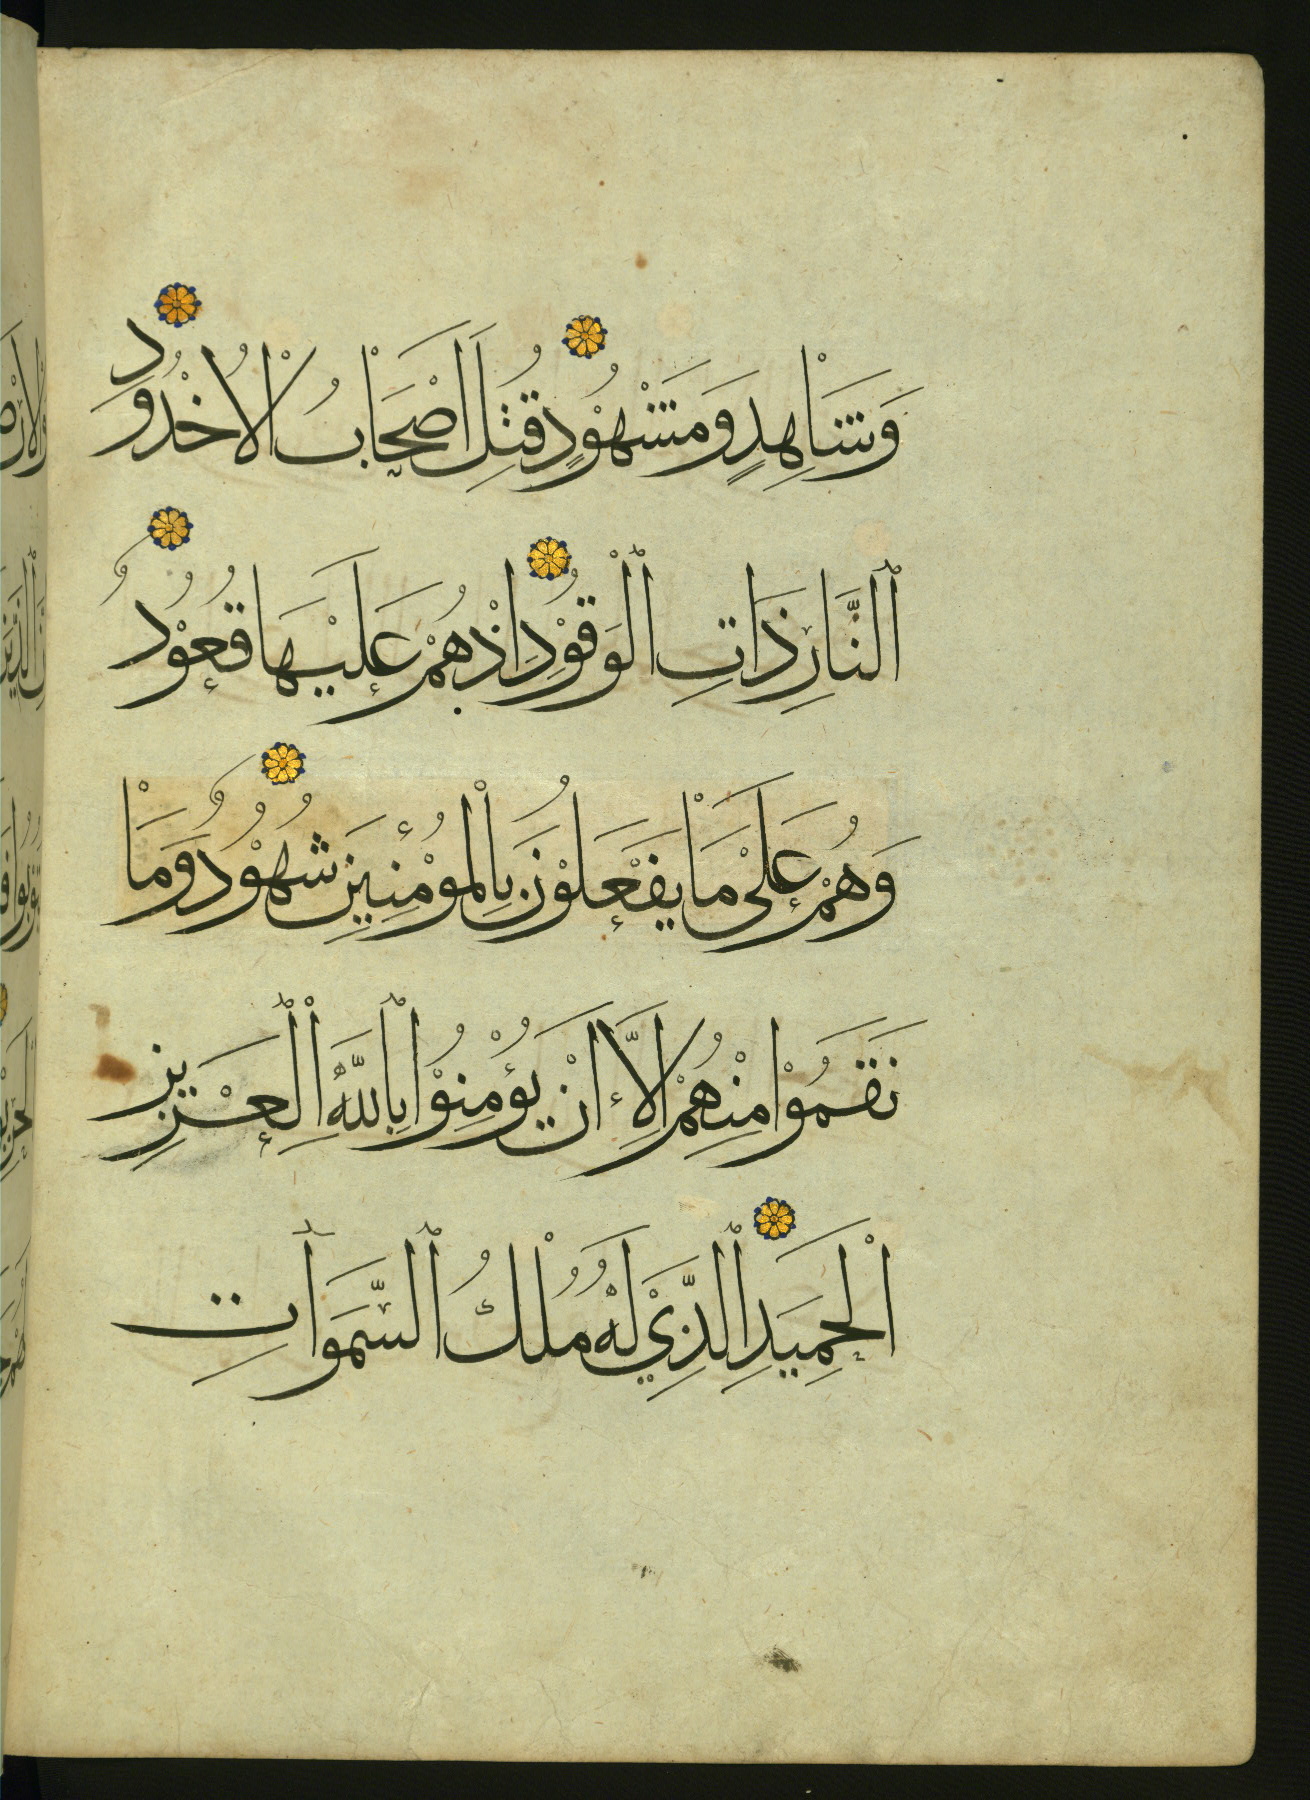 وَشَاهِدٍ وَمَشْهُوْدٍ قُتِلَ اَصْحَابُ الْاُخْدُوْدِ
اَلنَّارِ ذَاتِ الْوَقُوْدِ اِذْ هُمْ عَلَيْهَا قُعُوْدٌ
وَهُمْ عَلٰى مَا يَفْعَلُوْنَ بِالْمُؤْمِنِيْنَ شُهُوْدٌ وَمَا
نَقَمُوْا مِنْهُمْ اِلَّا اَنْ يُؤْمِنُوْا بِاللّٰهِ الْعَزِيْزِ
الْحَمِيْدِ الَّذِيْ لَهُ مُلْكُ السَّمٰوَاتِ